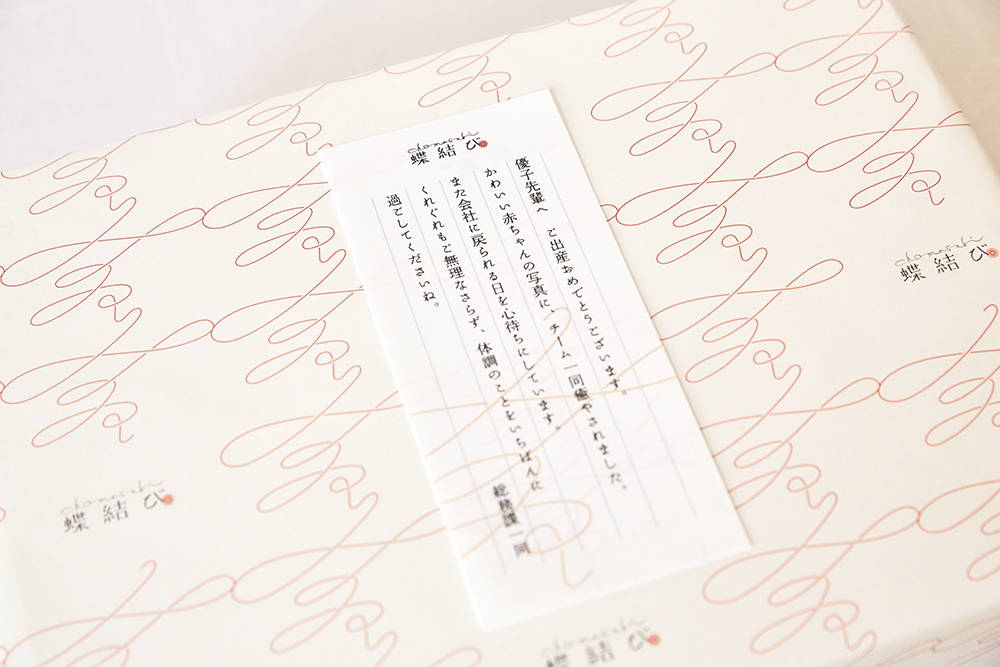 chomusubi
蝶結び
優子先輩へ ご出産おめでとうございます。
かわいい赤ちゃんの写真に、チーム一同癒やされました。
また会社に戻られる日を心待ちにしています。
くれぐれもご無理なさらず、体調のことをいちばんに
過ごしてくださいね。
総務課一同
chomusubi
蝶結び
chomusubi
蝶結び
chomusubi
蝶結び